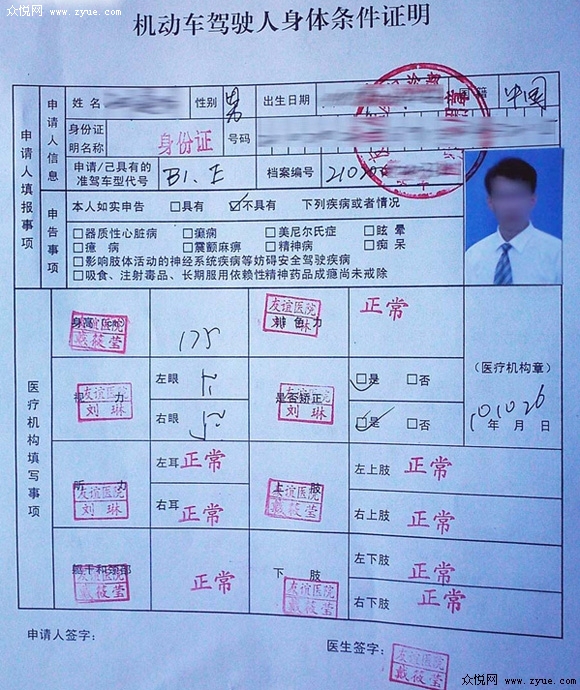 众悦网 www.zyue.com
机动车驾驶人身体条件证明
申请人填报事项
申请人信息
姓名 性别 男 出生日期 国籍 中国
身份证明名称 身份证 号码
申请/已具有的准驾车型代号 B1.E 档案编号 210
申告事项
本人如实申告 □具有 ☑不具有 下列疾病或者情况
□器质性心脏病 □癫痫 □美尼尔氏症 □眩晕
□癔病 □震颤麻痹 □精神病 □痴呆
□影响肢体活动的神经系统疾病等妨碍安全驾驶疾病
□吸食、注射毒品、长期服用依赖性精神药品成瘾尚未戒除
医疗机构填写事项
身高(cm) 友谊医院 戴筱莹 175 辨色力 友谊医院 刘琳 正常
视力 友谊医院 刘琳 左眼 是否矫正 友谊医院 刘琳 ☑是 □否
右眼 ☑是 □否
(医疗机构章)
10年10月26日
听力 友谊医院 刘琳 左耳 正常 上肢 友谊医院 戴筱莹 左上肢 正常
右耳 正常 右上肢 正常
躯干和颈部 友谊医院 戴筱莹 正常 下肢 友谊医院 戴筱莹 左下肢 正常
右下肢 正常
申请人签字： 医生签字： 友谊医院 戴筱莹
众悦网 www.zyue.com